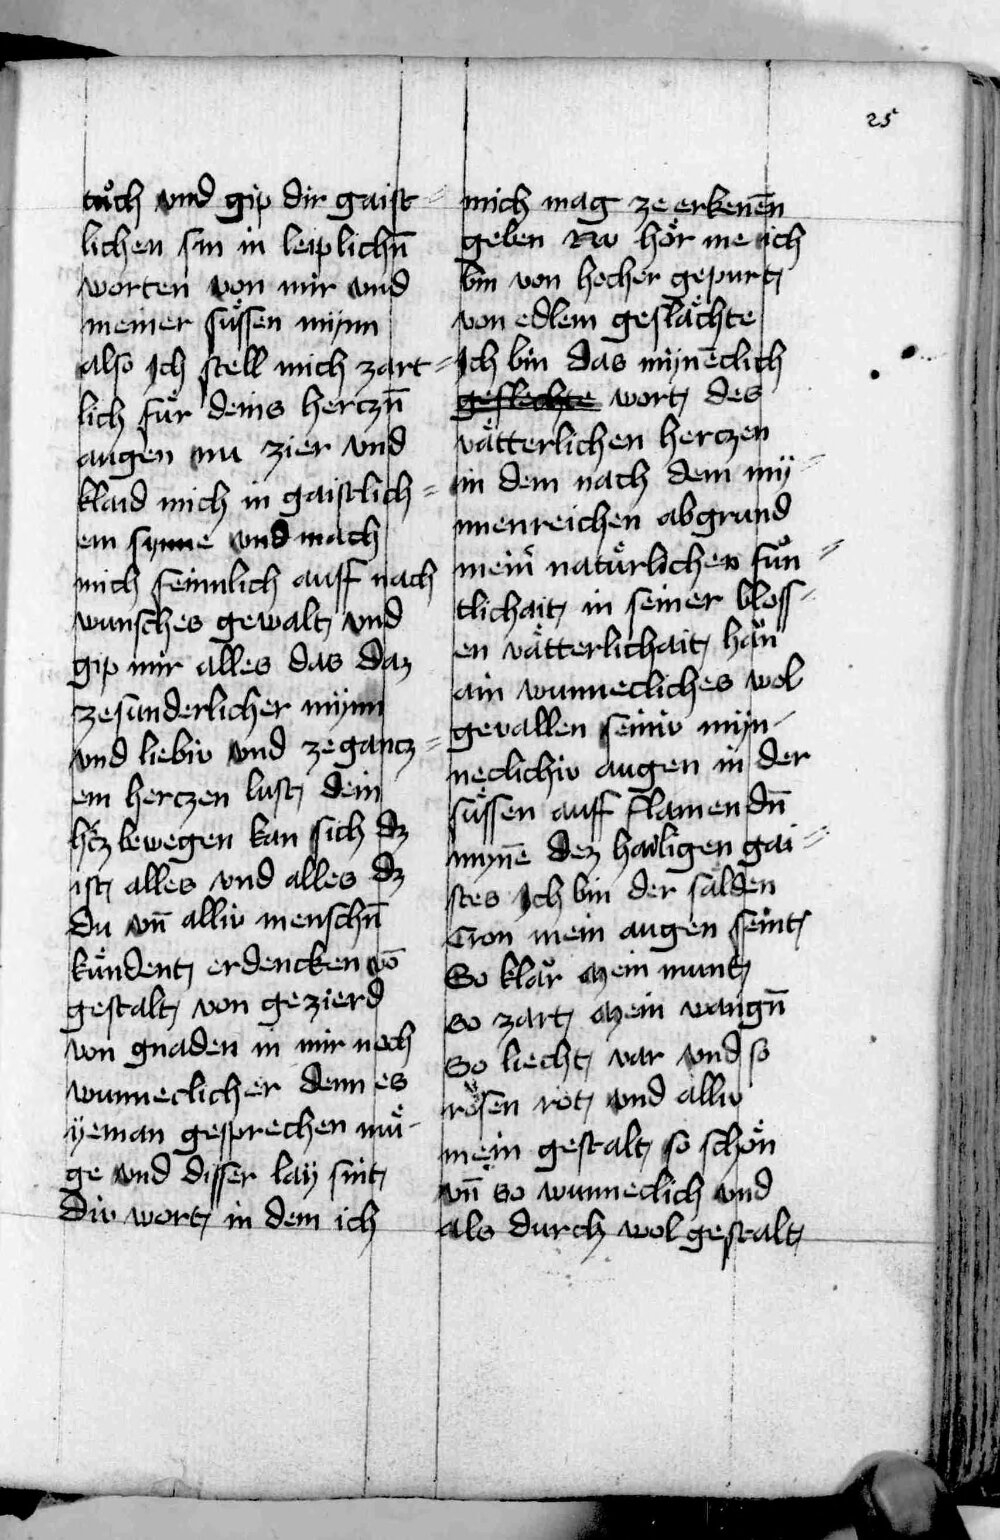 25
tuͦch vnd gip dir gaist⸗
lichen sin in leiplichn̄
worten von mir vnd
meiner suͤssen mynn
also Ich stell mich zart⸗
lich fuͤr deins herczn̄
augen nu zier vnd
klaid mich in gaistlich⸗
em synne vnd mach
mich feinnlich auff nach
wunsches gewalt vnd
gip mir alles das daz
ze sunderlicher mynn
vnd liebiv vnd ze gancz⸗
em herczen lust dein
hˢcz bewegen kan sich dz
ist alles vnd alles dz
du vn̄ alliv menschn̄
kuͤndent erdencken vō
gestalt von gezierd
von gnaden in mir noch
wunneclicher denn es
yeman gesprechen muͤ⸗
ge vnd disser lay sint
div wort in dem ich
mich mag ze erkenēn
geben Nv hoͤr me ich
bin von hocher gepurt
von edlem geslaͤchte
Ich bin das mynēclich
geslechte wort des
vaͤtterlichen herczen
in dem nach dem my⸗
nnenreichen abgrund
meinˢ natuͤrlichen suͦn⸗
tlichait in seiner bloss⸗
en vaͤtterlichait haͤn
ain wunnecliches wol
gevallen seiniv myn⸗
neclichiv augen in der
suͤssen auff flamendn̄
mynē dez hailigen gai⸗
stes Ich bin der saͤlden
Cron mein augen seint
So klaͤr Mein munt
so zart Mein wangn̄
So liecht var vnd so
roͤsen rot vnd alliv
mein gestalt so schoͤn
vn̄ so wunneclich vnd
als durch wol gestalt